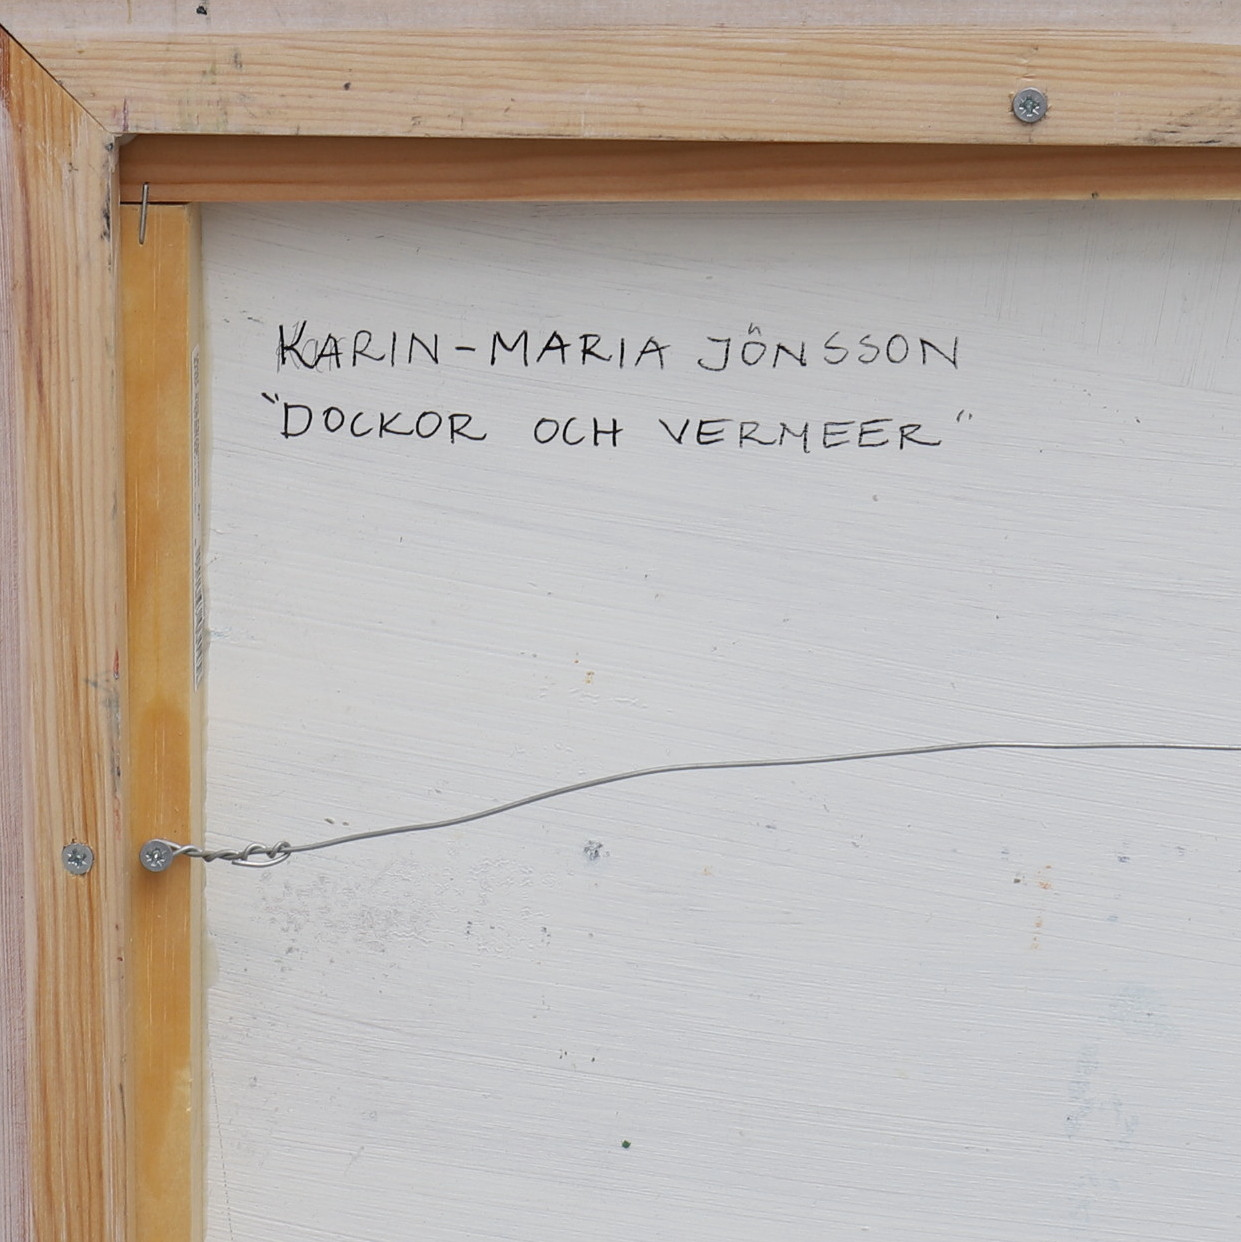 KARIN-MARIA JÖNSSON
"DOCKOR OCH VERMEER"